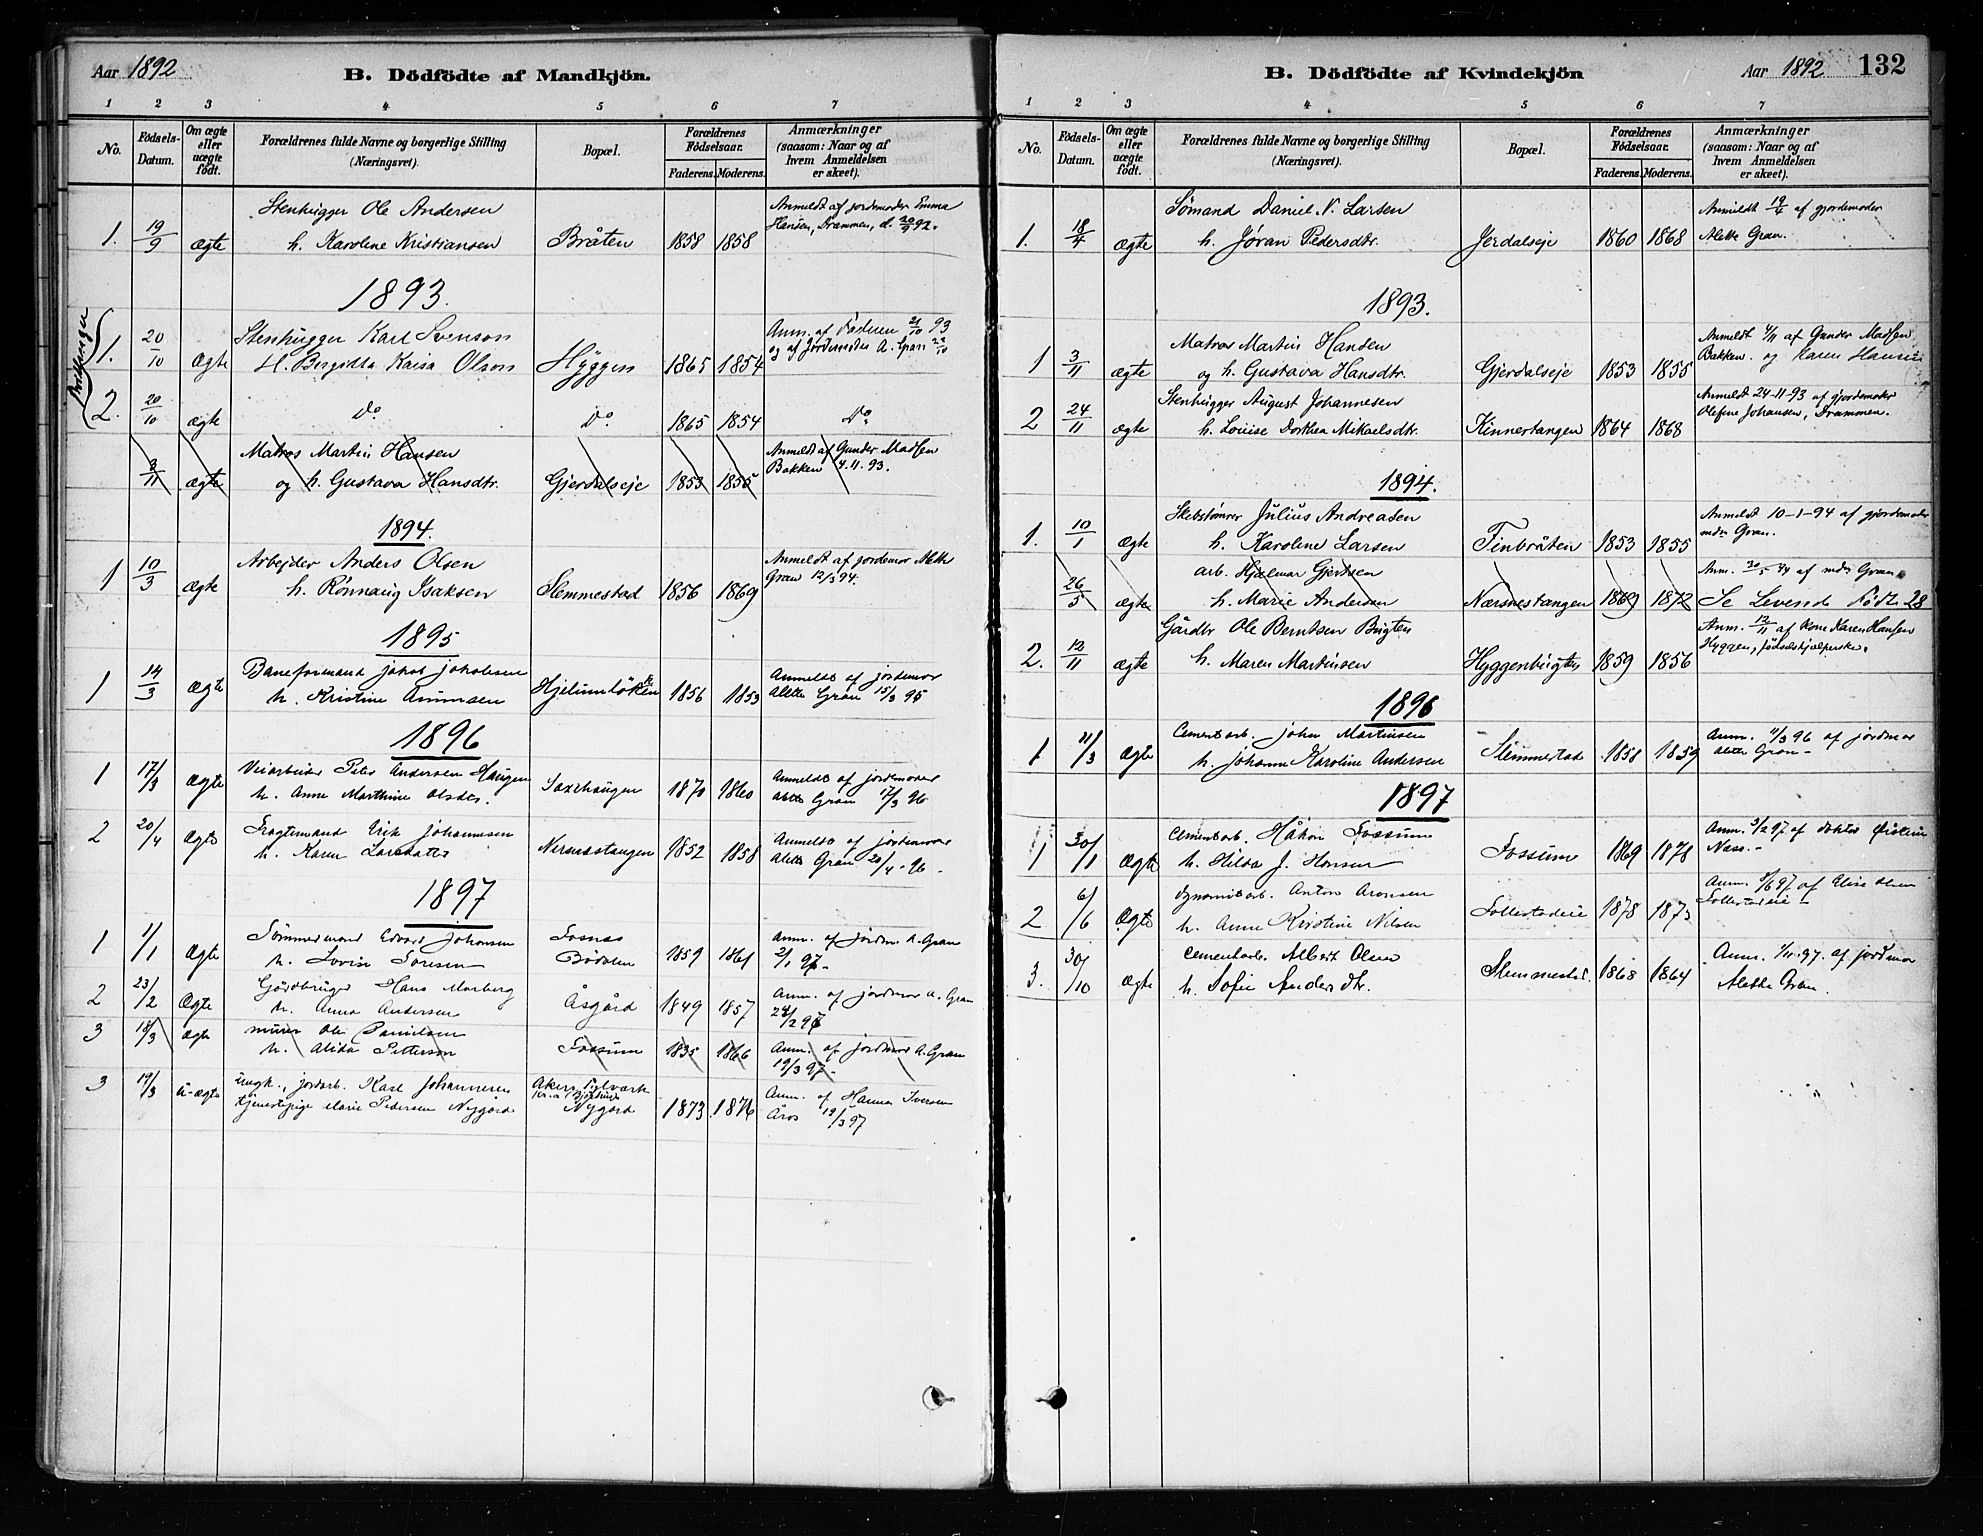 Aar 1892
B. Dödfödte af Mandkjön.
1 2 3 4 5 6 7
No.
Födsels-Datum.
Om ægte eller uægte födt.
Forældrenes fulde Navne og borgerlige Stilling (Næringsvei).
Bopæl.
Forældrenes Födselsaar.
Faderens. Moderens.
Anmærkninger (saasom: Naar og af hvem Anmeldelsen er skeet).
Stenhugger Ole Andersen Anmeldt af jordemoder Emma
1. 19/9 ægte h. Karoline Kristiansen Bråten 1858 1858 Hansen, Drammen, d. 20/9 92.
1893.
Stenhugger Karl Svenson Anm. af Faderen 21/10 93
1. 20/10 Ægte H. Birgitta Kaisa Olson Hyggen 1865 1854 og af Jordemoder A. Gran 22/10
2. 20/10 ægte Do Do 1865 1854 Do
Matros Martin Hansen Anmeldt af Gunder Madsen
3/11 ægte og h. Gustava Hansdtr. Gjerdalseje 1853 1855 Bakken 4.11.93.
1894.
Arbejder Anders Olsen Anmeldt af jordemor Aleth
1 10/3 ægte h. Rönnaug Isaksen Slemmestad 1856 1869 Gran 12/3 94.
1895
Baneformand Jakob Jakobsen Anmeldt af jordemor
1 14/3 Ægte h. Kristine 1856 1853 Alette Gran 15/3 95
1896
Veiarbeider Peter Andersen Haugen Anmeldt af jordemoder
1 17/3 Ægte h. Anne Marthine Olsdtr. Saxehaugen 1870 1860 Alette Gran 17/3 96
Fragtemand Erik Johannesen Anmeldt af jordemor
2 20/4 Ægte h. Karen Larsdatter Nersnestangen 1852 1858 Alette Gran 20/4 - 96.
1897
Tömmermand Edvard Johansen Anm. af jordm. A. Gran
1 1/1 Ægte h. Lovise 1859 1861 2/1 97.-
Gårdbruger Hans Morberg Anm. af jordmor A. Gran
2 23/2 Ægte h. Anna Andersen Åsgård 1849 1857 24/2 97
3 18/3 Ægte murer Ole Danielsen Anm. af jordmor A. Gran
h. Alida Petterson Fossum 1835 1866 19/3 97.-
3 19/3 u-ægte ungk., jordarb. Karl Johannesen Akers Anm. af Hanna Iversen
tjenestepige Marie Pedersen Nygård Nygård 1873 1876 Åros 19/3 97
B. Dödfödte af Kvindekjön
Aar 1892 132
1 2 3 4 5 6 7
No.
Födsels-Datum.
Om ægte eller uægte födt.
Forældrenes fulde Navne og borgerlige Stilling (Næringsvei).
Bopæl.
Forældrenes Födselsaar.
Faderens. Moderens.
Anmærkninger (saasom: Naar og af hvem Anmeldelsen er skeet).
Sömand Daniel N. Larsen Anmeldt 19/4 af gjordemoder
1. 18/4 Ægte h. Jøran Pedersdtr. Jerdalseje 1860 1868 Alette Gran.
1893.
Matros Martin Hansen Anmeldt 4/11 af Gunder Madsen
1 3/11 ægte og h. Gustava Hansdtr. Gjerdalseje 1853 1855 Bakken og Karen Hansen
Stenhugger August Johannesen Anmeldt 24-11-93 af gjordemoder
2 24/11 ægte h. Louise Dorthea Mikaelsdtr. Kinnertangen 1864 1868 Olefine Johansen, Drammen.
1894.
Skibstømrer Julius Andreasen Anmeldt 10-1-94 af gjordemoder
1. 10/1 Ægte h. Karoline Larsen Finbråten 1853 1855 mdr Gran.
arb. Hjalmar Gjertsen Anm. 30/5 94 af mdr Gran.
26/5 ægte h. Marie Andersen Nærsnestangen 1869 1872 Se Levende Födte 28
Gårdbr Ole Berntsen Bugten Anm. 12/11 af Kone Karen Hansen
2. 12/11 ægte h. Maren Martinsen Hyggenbugten 1859 1856 Hyggen, födselshjælperske.
1896
Cementarb. John Martinsen Anm. 11/3 96 af jordmor
1 11/3 Ægte h. Johanne Karoline Andersen Slemmestad 1858 1859 Alette Gran -
1897
Cementarb. Håkon Fossum Anm. 3/2 97 af doktor Øistein
1 30/1 Ægte h. Hilda J. Hansen Fossum 1869 1878 Næss.-
Dynamitarb. Anton Aronsen Anm. 8/6 97 af Elise Olsen
2 6/6 Ægte h. Anne Kristine Nilsen Follestadeie 1878 1873 Follestadeie
Cementarb. Albert Olsen Anm. 1/11.97. af jordmor
3. 30/10 Ægte h. Sofie Andersdtr. Slemmestad 1868 1864 Alette Gran.